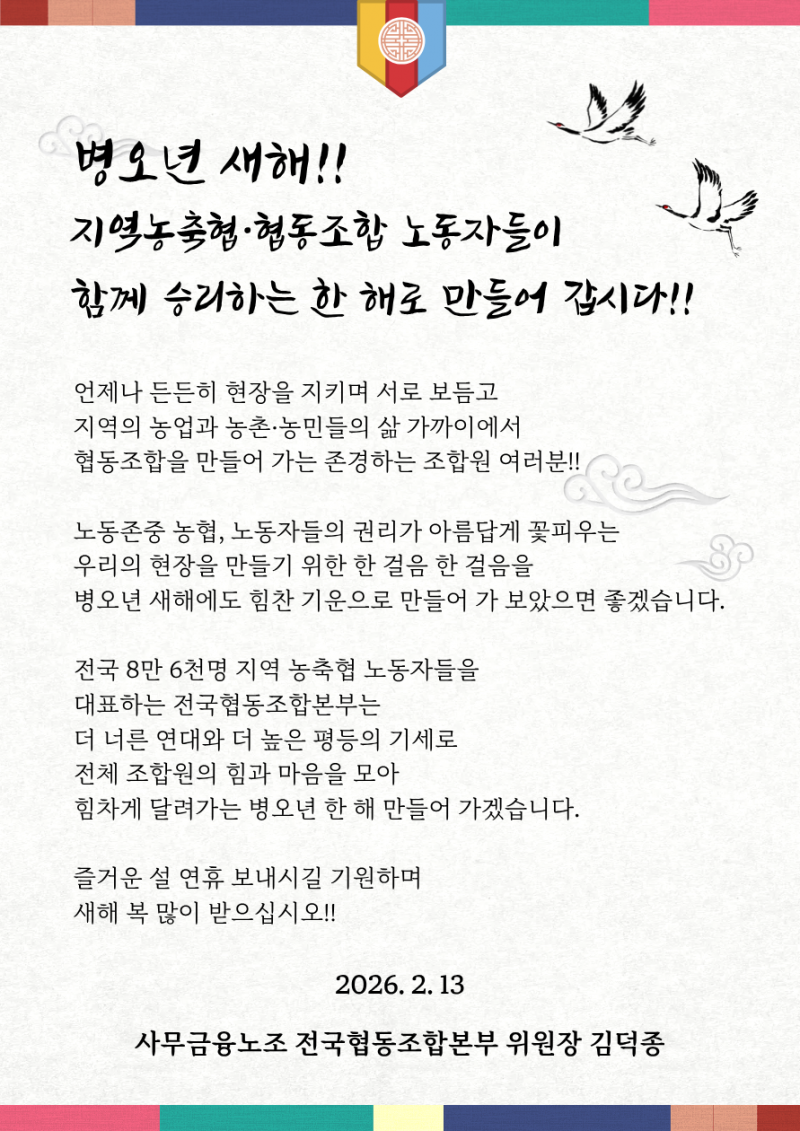 병오년 새해!!
지역농축협·협동조합 노동자들이
함께 승리하는 한 해로 만들어 갑시다!!
언제나 든든히 현장을 지키며 서로 보듬고
지역의 농업과 농촌·농민들의 삶 가까이에서
협동조합을 만들어 가는 존경하는 조합원 여러분!!
노동존중 농협, 노동자들의 권리가 아름답게 꽃피우는
우리의 현장을 만들기 위한 한 걸음 한 걸음을
병오년 새해에도 힘찬 기운으로 만들어 가 보았으면 좋겠습니다.
전국 8만 6천명 지역 농축협 노동자들을
대표하는 전국협동조합본부는
더 너른 연대와 더 높은 평등의 기세로
전체 조합원의 힘과 마음을 모아
힘차게 달려가는 병오년 한 해 만들어 가겠습니다.
즐거운 설 연휴 보내시길 기원하며
새해 복 많이 받으십시오!!
2026. 2. 13
사무금융노조 전국협동조합본부 위원장 김덕종